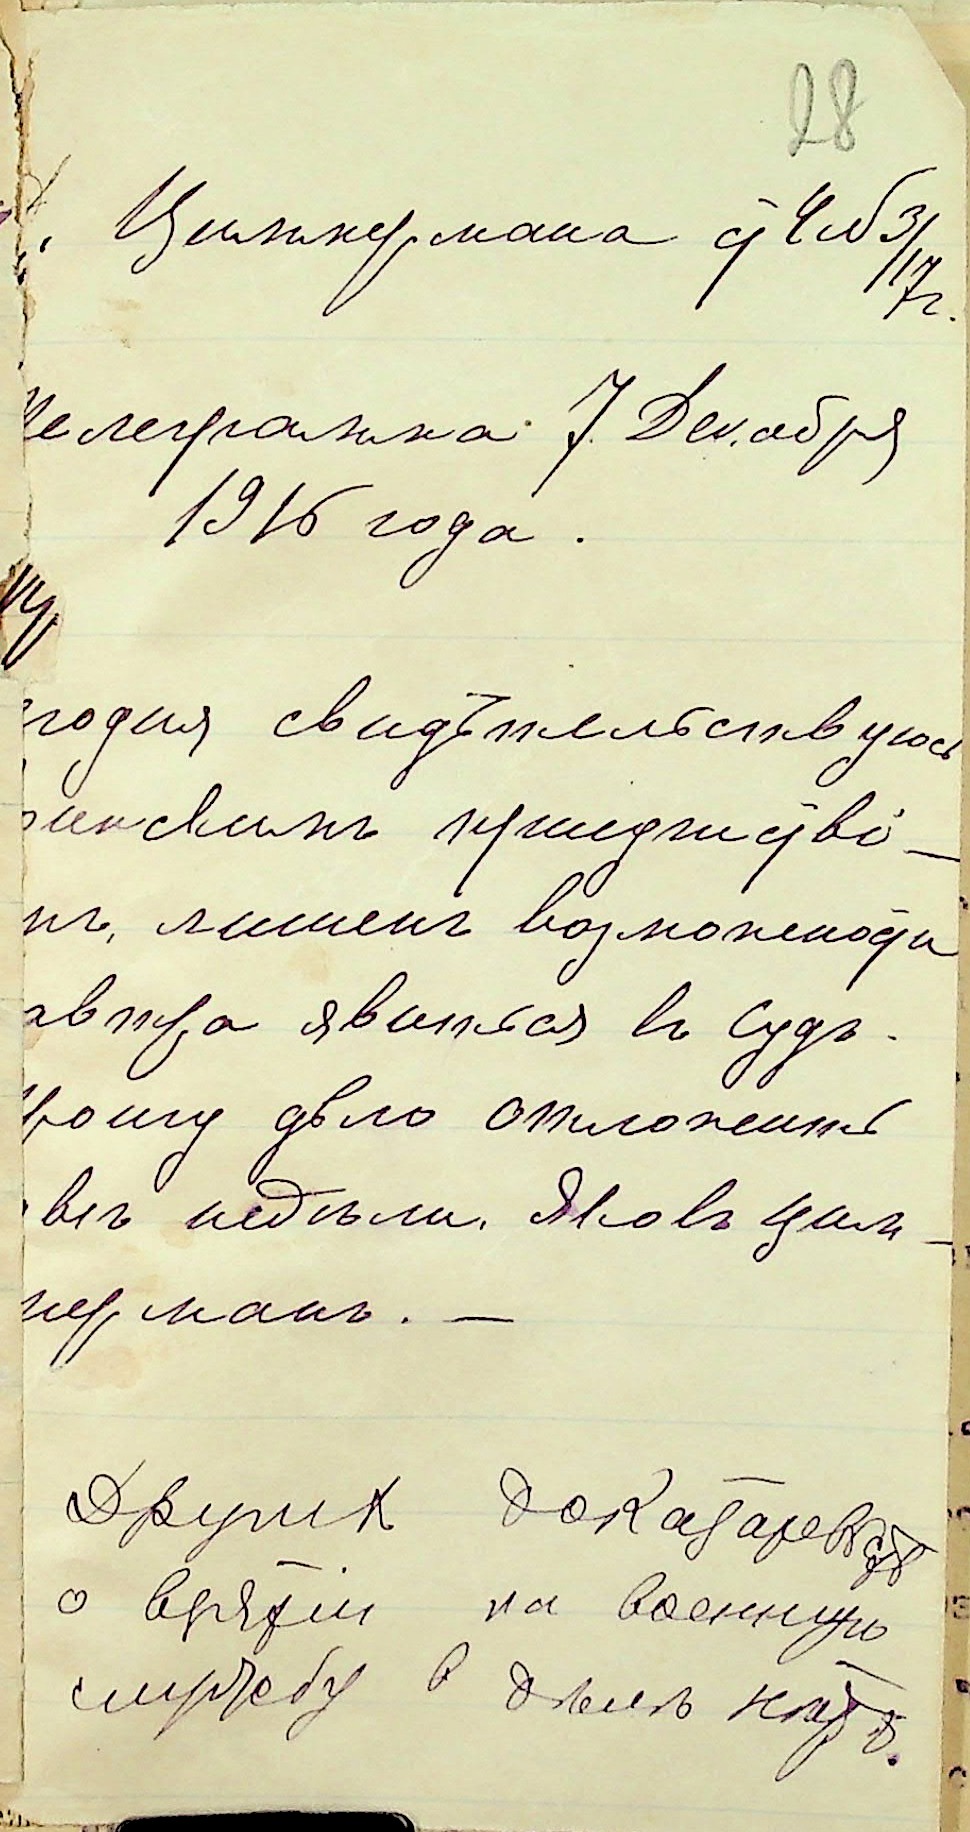 28
Циммермана
Телеграмма 7 Декабря
1916 года.
годня свидѣтельствуюсь
инскимъ присутство-
мъ, лишенъ возможности
автра явиться въ Судъ.
Прошу дѣло отложить
двѣ недѣли. Яковъ Цим-
мерманъ. —
Другихъ доказательствъ
о взятіи на военную
службу в дѣлѣ нѣтъ.